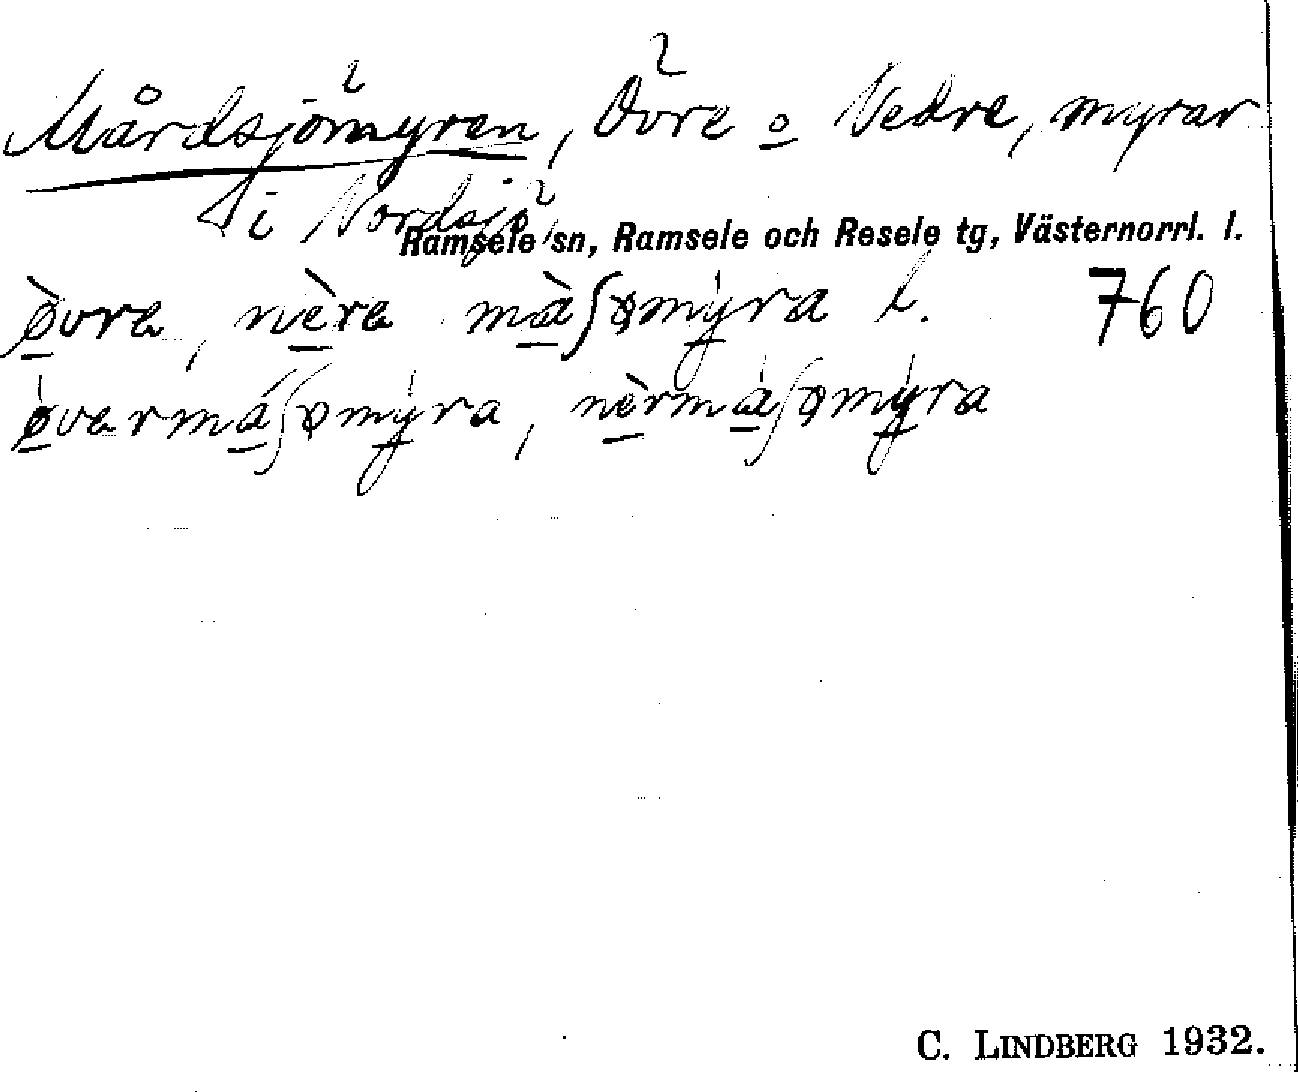 Mårdsjömyren, Övre o Nedre, myrar
i Nordsjö,
Ramsele sn, Ramsele och Resele tg, Västernorrl. l.
ø̀vre, nère màʃømýra l. 760
ø̀vermáʃømýra, nèrmàʃømýra
C. LINDBERG 1932.